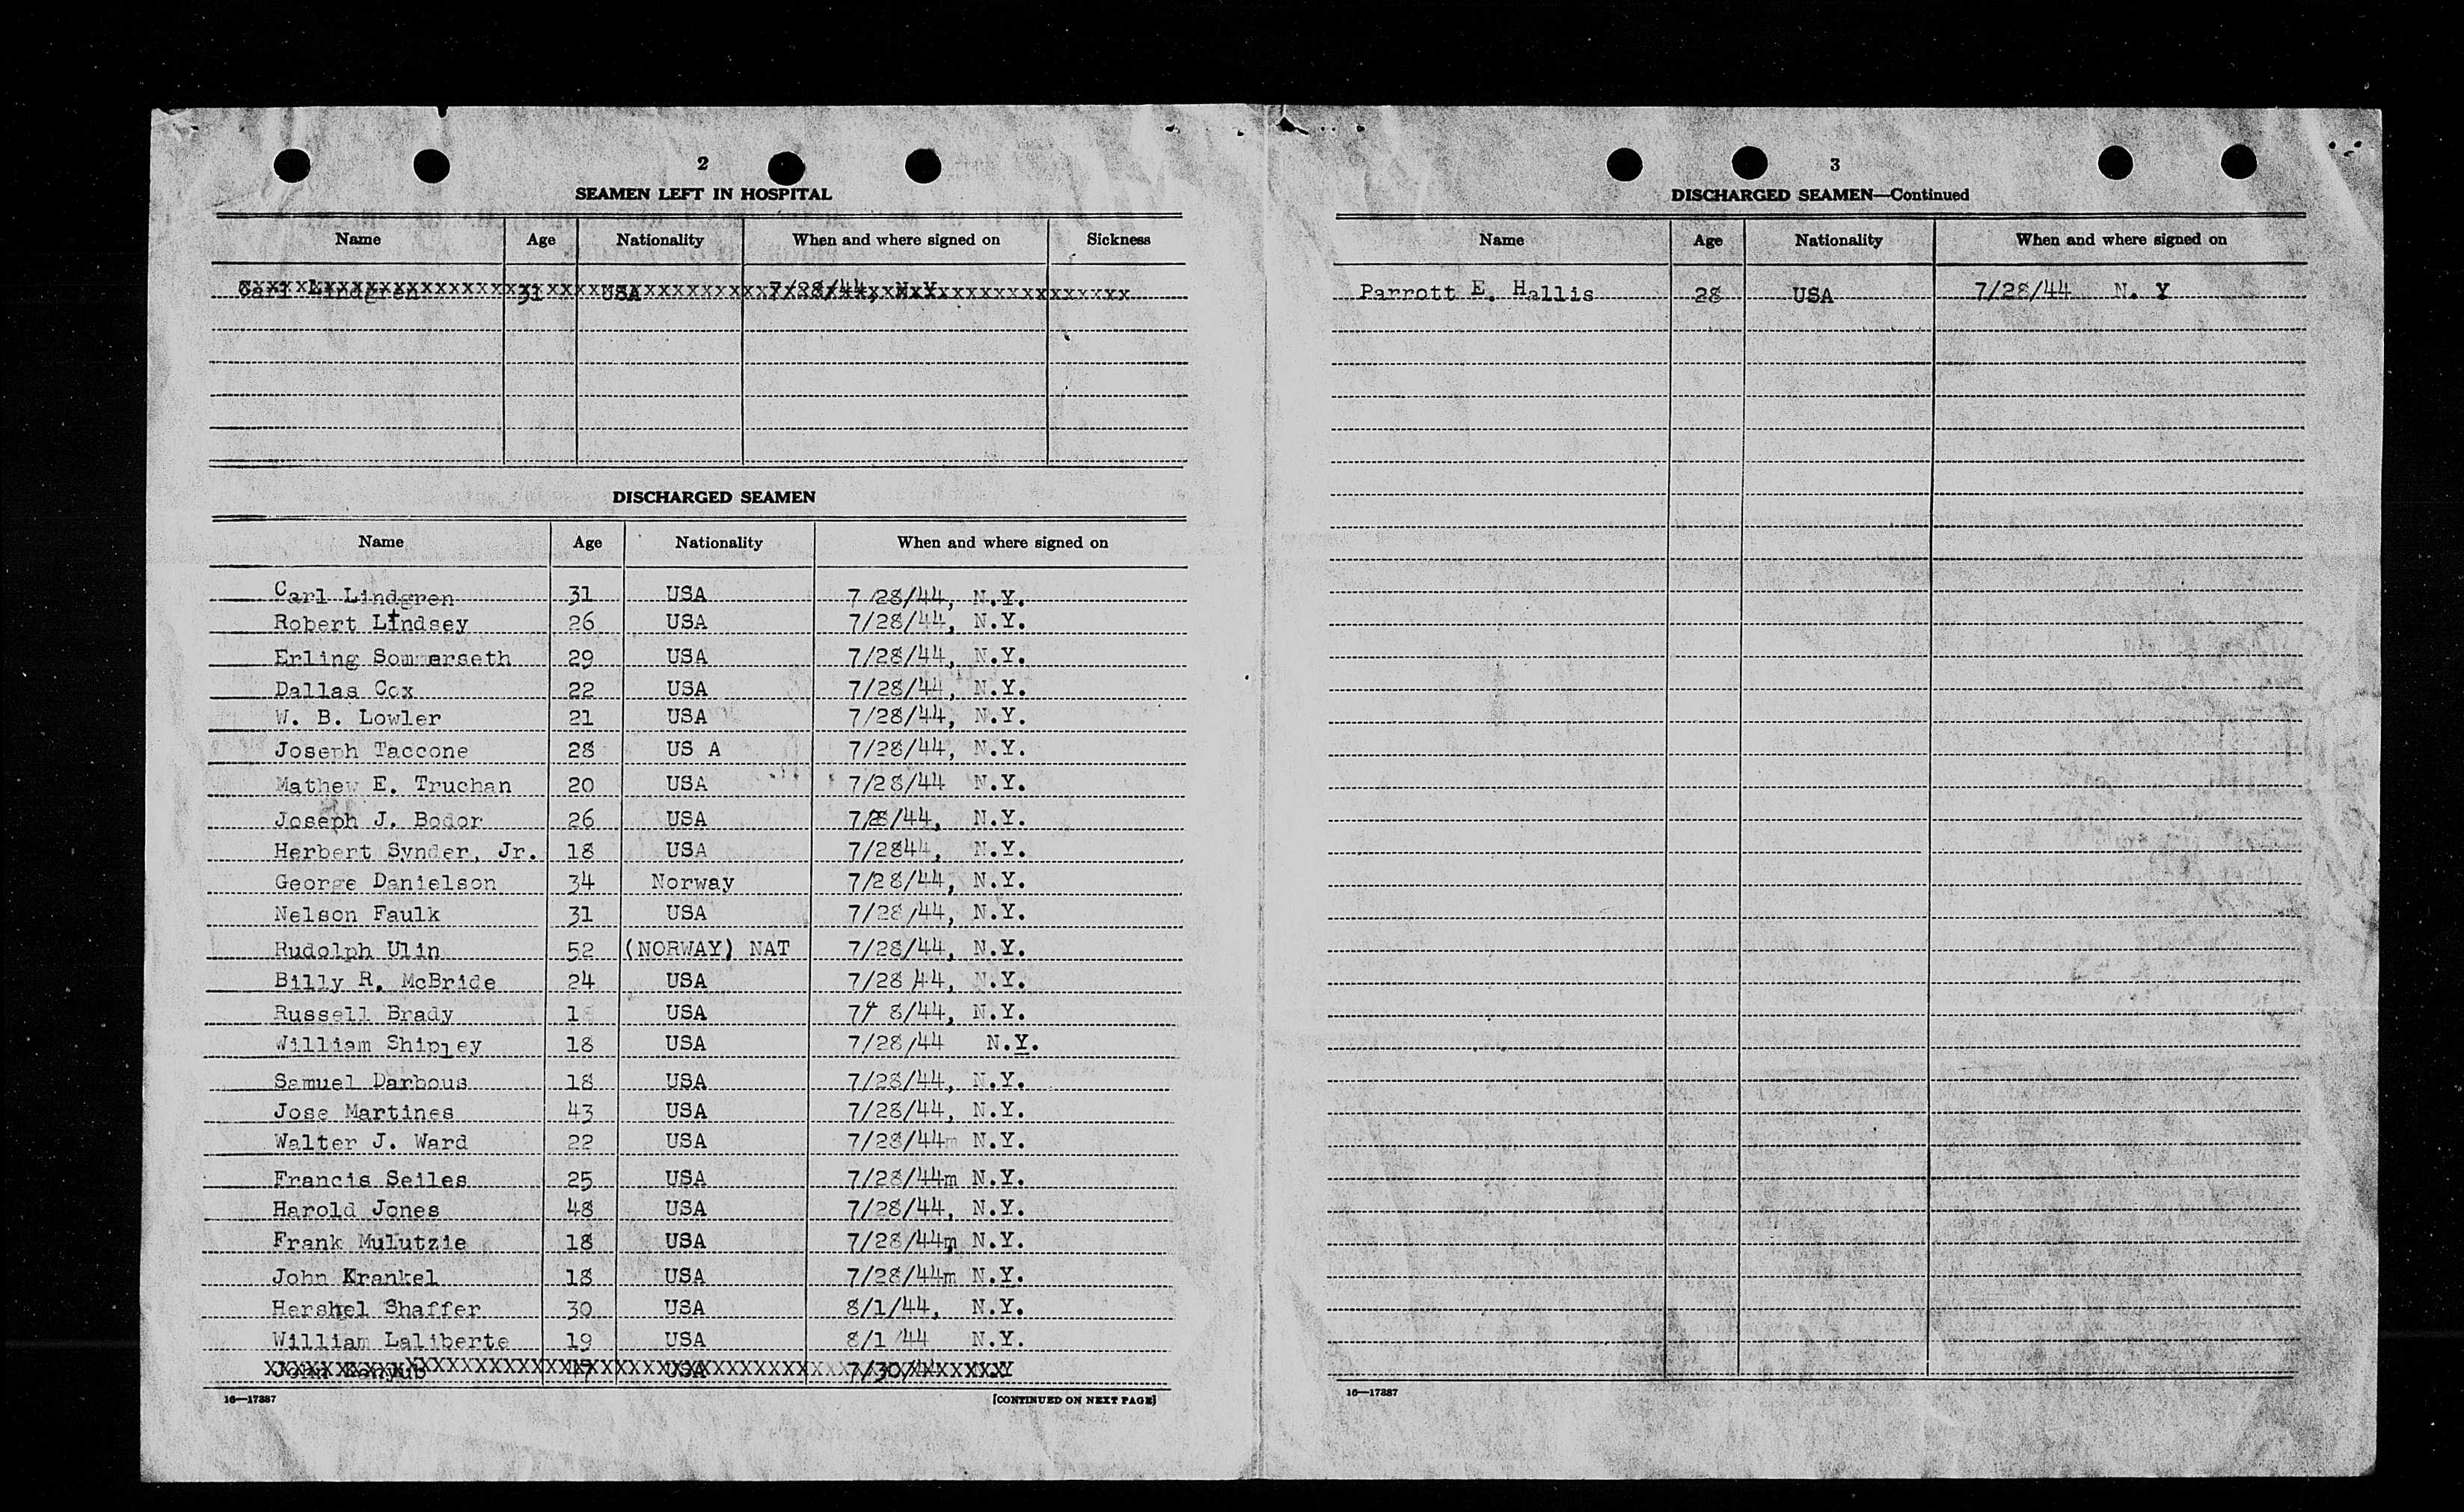 2
SEAMEN LEFT IN HOSPITAL
Name Age Nationality When and where signed on Sickness
Carl Lindgren 31 USA 7/28/44, N.Y.
DISCHARGED SEAMEN
Name Age Nationality When and where signed on
Carl Lindgren 31 USA 7 28/44, N.Y.
Robert Lindsey 26 USA 7/28/44, N.Y.
Erling Sommerseth 29 USA 7/28/44, N.Y.
Dallas Cox 22 USA 7/28/44, N.Y.
W. B. Lowler 21 USA 7/28/44, N.Y.
Joseph Taccone 28 US A 7/28/44, N.Y.
Mathew E. Truchan 20 USA 7/28/44 N.Y.
Joseph J. Bodor 26 USA 7/28/44, N.Y.
Herbert Synder, Jr. 18 USA 7/2844, N.Y.
George Danielson 34 Norway 7/28/44, N.Y.
Nelson Faulk 31 USA 7/28/44, N.Y.
Rudolph Ulin 52 (NORWAY) NAT 7/28/44, N.Y.
Billy R. McBride 24 USA 7/28/44, N.Y.
Russell Brady USA 8/44, N.Y.
William Shipley 18 USA 7/28/44 N.Y.
Samuel Darbous 18 USA 7/28/44, N.Y.
Jose Martines 43 USA 7/28/44, N.Y.
Walter J. Ward 22 USA 7/28/44m N.Y.
Francis Seiles 25 USA 7/28/44m N.Y.
Harold Jones 48 USA 7/28/44, N.Y.
Frank Mulutzie 18 USA 7/28/44m N.Y.
John Krankel 18 USA 7/28/44m N.Y.
Hershel Shaffer 30 USA 8/1/44, N.Y.
William Laliberte 19 USA 8/1/44 N.Y.
John 47 USA 7/30/44
16—17387 [CONTINUED ON NEXT PAGE]
3
DISCHARGED SEAMEN—Continued
Name Age Nationality When and where signed on
Parrott E. Hallis 28 USA 7/28/44 N. Y
16—17387